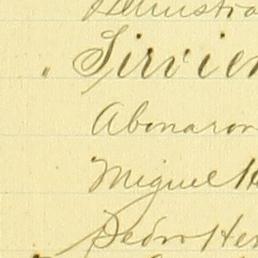 Sirvien
Abonaron
Miguel H
Pedro Her